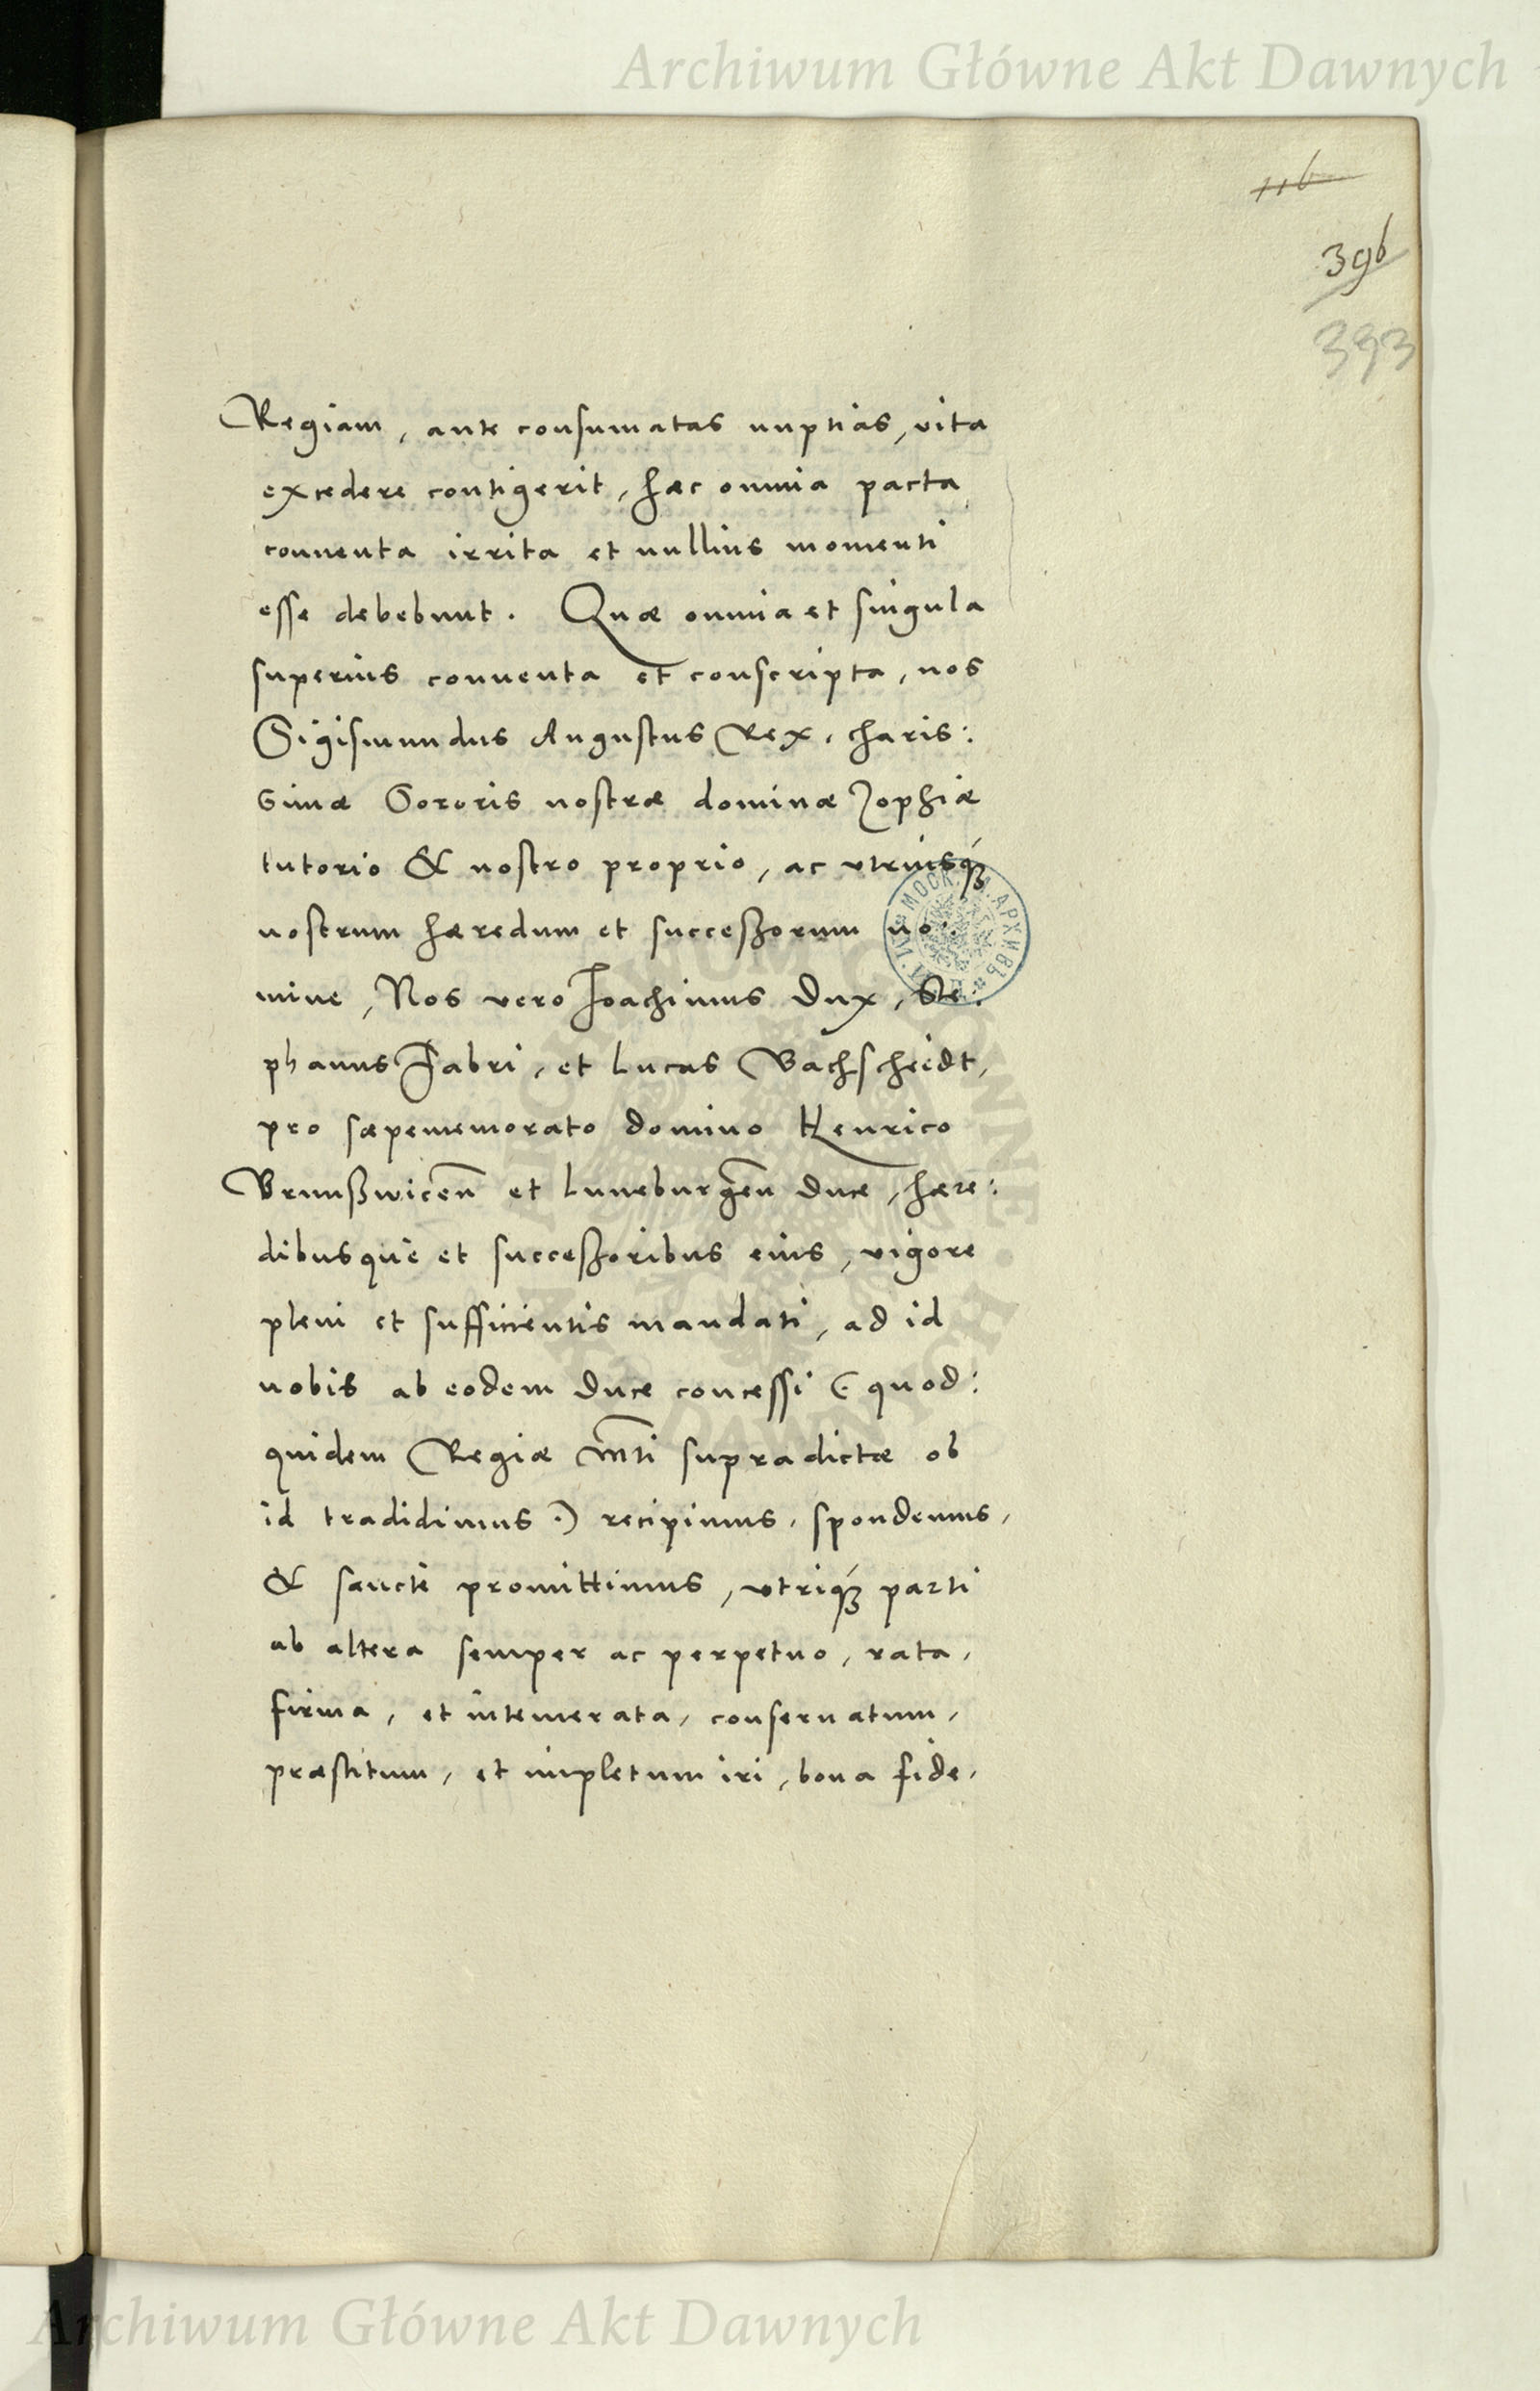 Archiwum Główne Akt Dawnych
116
396
393
Regiam, ante consumatas nuptias, vita
excedere contigerit, hæc omnia pacta
conuenta irrita et nullius momenti
esse debebunt. Quæ omnia et singula
superius conuenta et conscripta, nos
Sigismundus Augustus Rex, charis:
simæ Sororis nostræ dominæ Zophiæ
tutorio & nostro proprio, ac vtriusq́ꝫ
nostrum hæredum et successorum no:
mine, Nos vero Joachimus Dux, Ste:
phanus Fabri, et Lucas Bachscheidt,
pro sæpememorato domino Henrico
Brunßwiceñ et Luneburgeñ Duce, hære:
dibusque et successoribus eius, vigore
pleni et sufficientis mandati, ad id
nobis ab eodem Duce concessi (: quod:
quidem Regiæ Mti supradictæ ob
id tradidimus :) recipimus, spondemus,
& sanctè promittimus, vtriq́ꝫ parti
ab altera semper ac perpetuo, rata,
firma, et intemerata, conseruatum,
præstitum, et impletum iri, bona fide,
Archiwum Główne Akt Dawnych